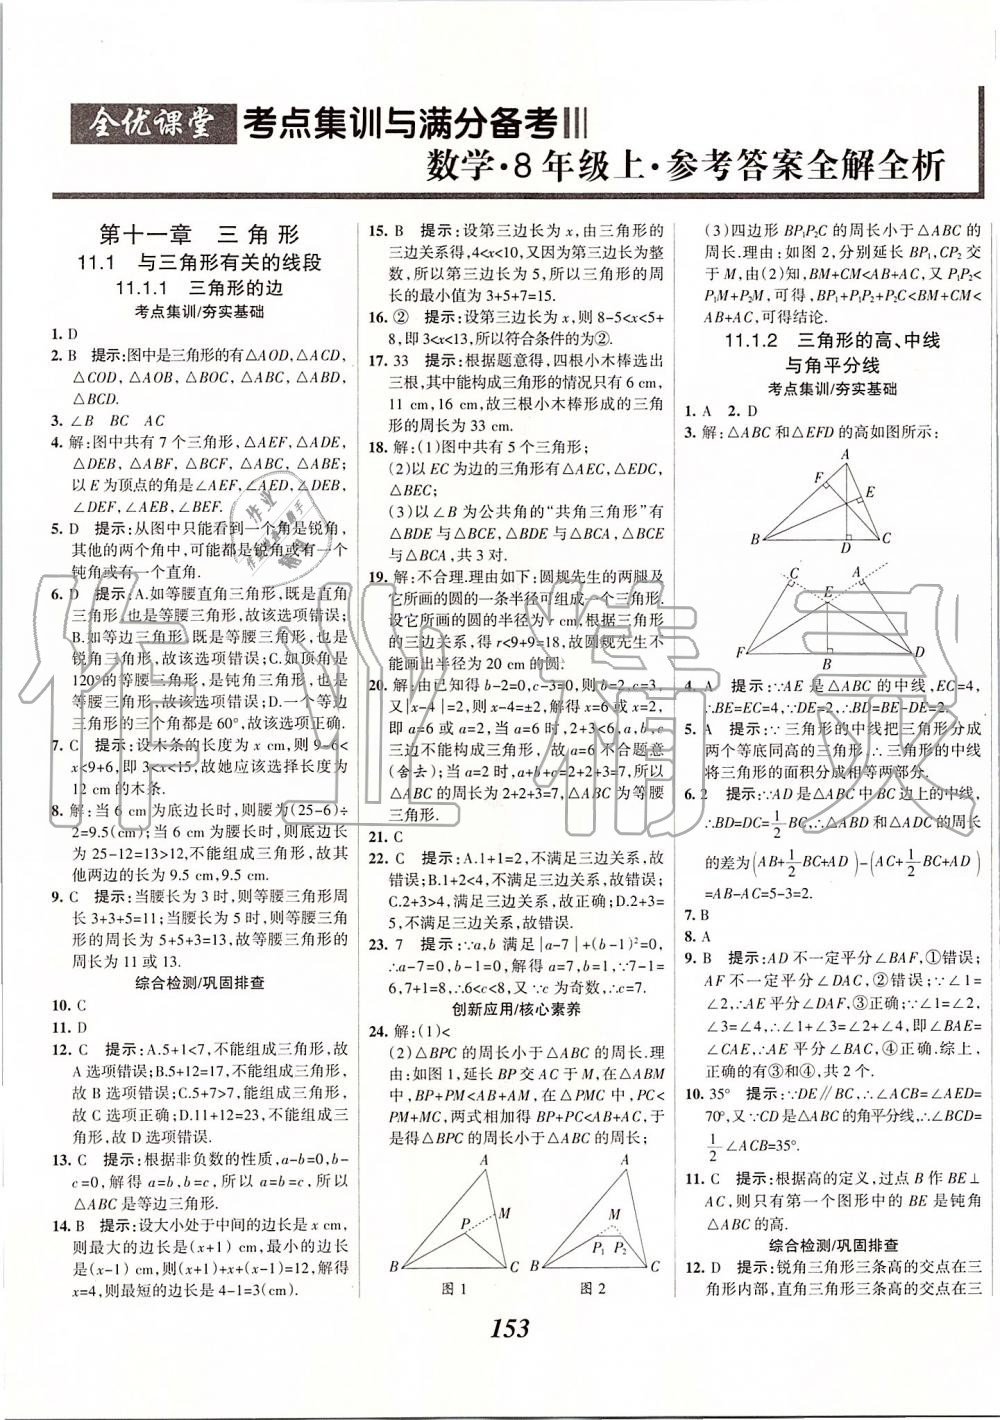 全优课堂 考点集训与满分备考
数学·8年级上·参考答案全解全析
第十一章 三角形
11.1 与三角形有关的线段
11.1.1 三角形的边
考点集训/夯实基础
1. D
2. B 提示:图中是三角形的有△AOD,△ACD,
△COD,△AOB,△BOC,△ABC,△ABD,
△BCD.
3. ∠B BC AC
4. 解:图中共有 7 个三角形,△AEF,△ADE,
△DEB,△ABF,△BCF,△ABC,△ABE;
以 E 为顶点的角是∠AEF,∠AED,∠DEB,
∠DEF,∠AEB,∠BEF.
5. D 提示:从图中只能看到一个角是锐角,
其他的两个角中,可能都是锐角或有一个
钝角或有一个直角.
6. D 提示:A.如等腰直角三角形,既是直角
三角形,也是等腰三角形,故该选项错误;
B.如等边三角形,既是等腰三角形,也是
锐角三角形,故该选项错误;C.如顶角是
120°的等腰三角形,是钝角三角形,也是
等腰三角形,故该选项错误;D.一个等边
三角形的三个角都是 60°,故该选项正确.
7. C 提示:设木条的长度为 x cm,则 9-6<
x<9+6,即 3<x<15,故她应该选择长度为
12 cm 的木条.
8. 解:当 6 cm 为底边长时,则腰为(25-6)÷
2=9.5(cm);当 6 cm 为腰长时,则底边长
为 25-12=13>12,不能组成三角形,故其
他两边的长为 9.5 cm,9.5 cm.
9. C 提示:当腰长为 3 时,则等腰三角形周
长 3+3+5=11;当腰长为 5 时,则等腰三角
形的周长为 5+5+3=13,故等腰三角形的
周长为 11 或 13.
综合检测/巩固排查
10. C
11. D
12. C 提示:A.5+1<7,不能组成三角形,故
A 选项错误;B.5+12=17,不能组成三角形,
故 B 选项错误;C.5+7>7,能组成三角形,
故 C 选项正确;D.11+12=23,不能组成三
角形,故 D 选项错误.
13. C 提示:根据非负数的性质,a-b=0,b-
c=0,解得 a=b,b=c,所以 a=b=c,所以
△ABC 是等边三角形.
14. B 提示:设大小处于中间的边长是 x cm,
则最大的边长是(x+1) cm,最小的边长
是(x-1) cm,则(x+1)+x+(x-1)=12,解得
x=4,则最短的边长是 4-1=3(cm).
15. B 提示:设第三边长为 x,由三角形的
三边关系得,4<x<10,又因为第三边长为整
数,所以第三边长为 5,所以三角形的周长
的最小值为 3+5+7=15.
16. ② 提示:设第三边长为 x,则 8-5<x<5+
8,即 3<x<13,所以符合条件的为②.
17. 33 提示:根据题意得,四根小木棒选出
三根,其中能构成三角形的情况只有 6 cm,
11 cm,16 cm,故三根小木棒形成的三角
形的周长为 33 cm.
18. 解:(1)图中共有 5 个三角形;
(2)以 EC 为边的三角形有△AEC,△EDC,
△BEC;
(3)以∠B 为公共角的“共角三角形”有
△BDE 与△BCE,△BDE 与△BCA,△BCE
与△BCA,共 3 对.
19. 解:不合理.理由如下:圆规先生的两腿及
它所画的圆的一条半径可组成一个三角形.
设它所画的圆的半径为 r cm,根据三角形
的三边关系,得 r<9+9=18,故圆规先生不
能画出半径为 20 cm 的圆.
20. 解:由已知得 b-2=0,c-3=0,则 b=2,c=3,
又|x-4|=2,则 x-4=±2,解得 x=6 或 x=2,
即 a=6 或 a=2,当 a=6 时,2+3<6,a,b,c
三边不能构成三角形,故 a=6 不合题意
(舍去);当 a=2 时,a+b+c=2+2+3=7,所以
△ABC 的周长为 2+2+3=7,△ABC 为等腰
三角形.
21. C
22. C 提示:A.1+1=2,不满足三边关系,故
错误;B.1+2<4,不满足三边关系,故错误;
C.2+3>4,满足三边关系,故正确;D.2+3=
5,不满足三边关系,故错误.
23. 7 提示:∵a,b 满足|a-7|+(b-1)²=0,
∴a-7=0,b-1=0,解得 a=7,b=1,∵7-1=
6,7+1=8,∴6<c<8,又∵c 为奇数,∴c=7.
创新应用/核心素养
24. 解:(1)<
(2)△BPC 的周长小于△ABC 的周长.理
由:如图 1,延长 BP 交 AC 于 M,在△ABM
中,BP+PM<AB+AM,在△PMC 中,PC<
PM+MC,两式相加得 BP+PC<AB+AC,于
是得△BPC 的周长小于△ABC 的周长;
A
P
M
B
C
图 1
A
M
P₁
P₂
B
C
图 2
(3)四边形 BP₁P₂C 的周长小于△ABC 的
周长.理由:如图 2,分别延长 BP₁,CP₂ 交
于 M,由(2)知,BM+CM<AB+AC,又 P₁P₂<
P₁M+P₂M,可得,BP₁+P₁P₂+P₂C<BM+CM<
AB+AC,可得结论.
11.1.2 三角形的高、中线
与角平分线
考点集训/夯实基础
1. A 2. D
3. 解:△ABC 和△EFD 的高如图所示:
A
F
E
B
D
C
C
A
E
F
B
D
4. A 提示:∵AE 是△ABC 的中线,EC=4,
∴BE=EC=4,∵DE=2,∴BD=BE-DE=2.
5. A 提示:∵三角形的中线把三角形分成
两个等底同高的三角形,∴三角形的中线
将三角形的面积分成相等两部分.
6. 2 提示:∵AD 是△ABC 中 BC 边上的中线,
∴BD=DC=1/2 BC,∴△ABD 和△ADC 的周长
的差为(AB+1/2 BC+AD)-(AC+1/2 BC+AD)
=AB-AC=5-3=2.
7. B
8. A
9. B 提示:AD 不一定平分∠BAF,①错误;
AF 不一定平分∠DAC,②错误;∵∠1=
∠2,∴AE 平分∠DAF,③正确;∵∠1=∠2,
∠3=∠4,∴∠1+∠3=∠2+∠4,即∠BAE=
∠CAE,∴AE 平分∠BAC,④正确.综上,
正确的有③和④,共 2 个.
10. 35° 提示:∵DE∥BC,∴∠ACB=∠AED=
70°,又∵CD 是△ABC 的角平分线,∴∠BCD=
1/2 ∠ACB=35°.
11. C 提示:根据高的定义,过点 B 作 BE⊥
AC,则只有第一个图形中的 BE 是钝角
△ABC 的高.
综合检测/巩固排查
12. D 提示:锐角三角形三条高的交点在三
角形内部,直角三角形三条高的交点在三
153
作业精灵